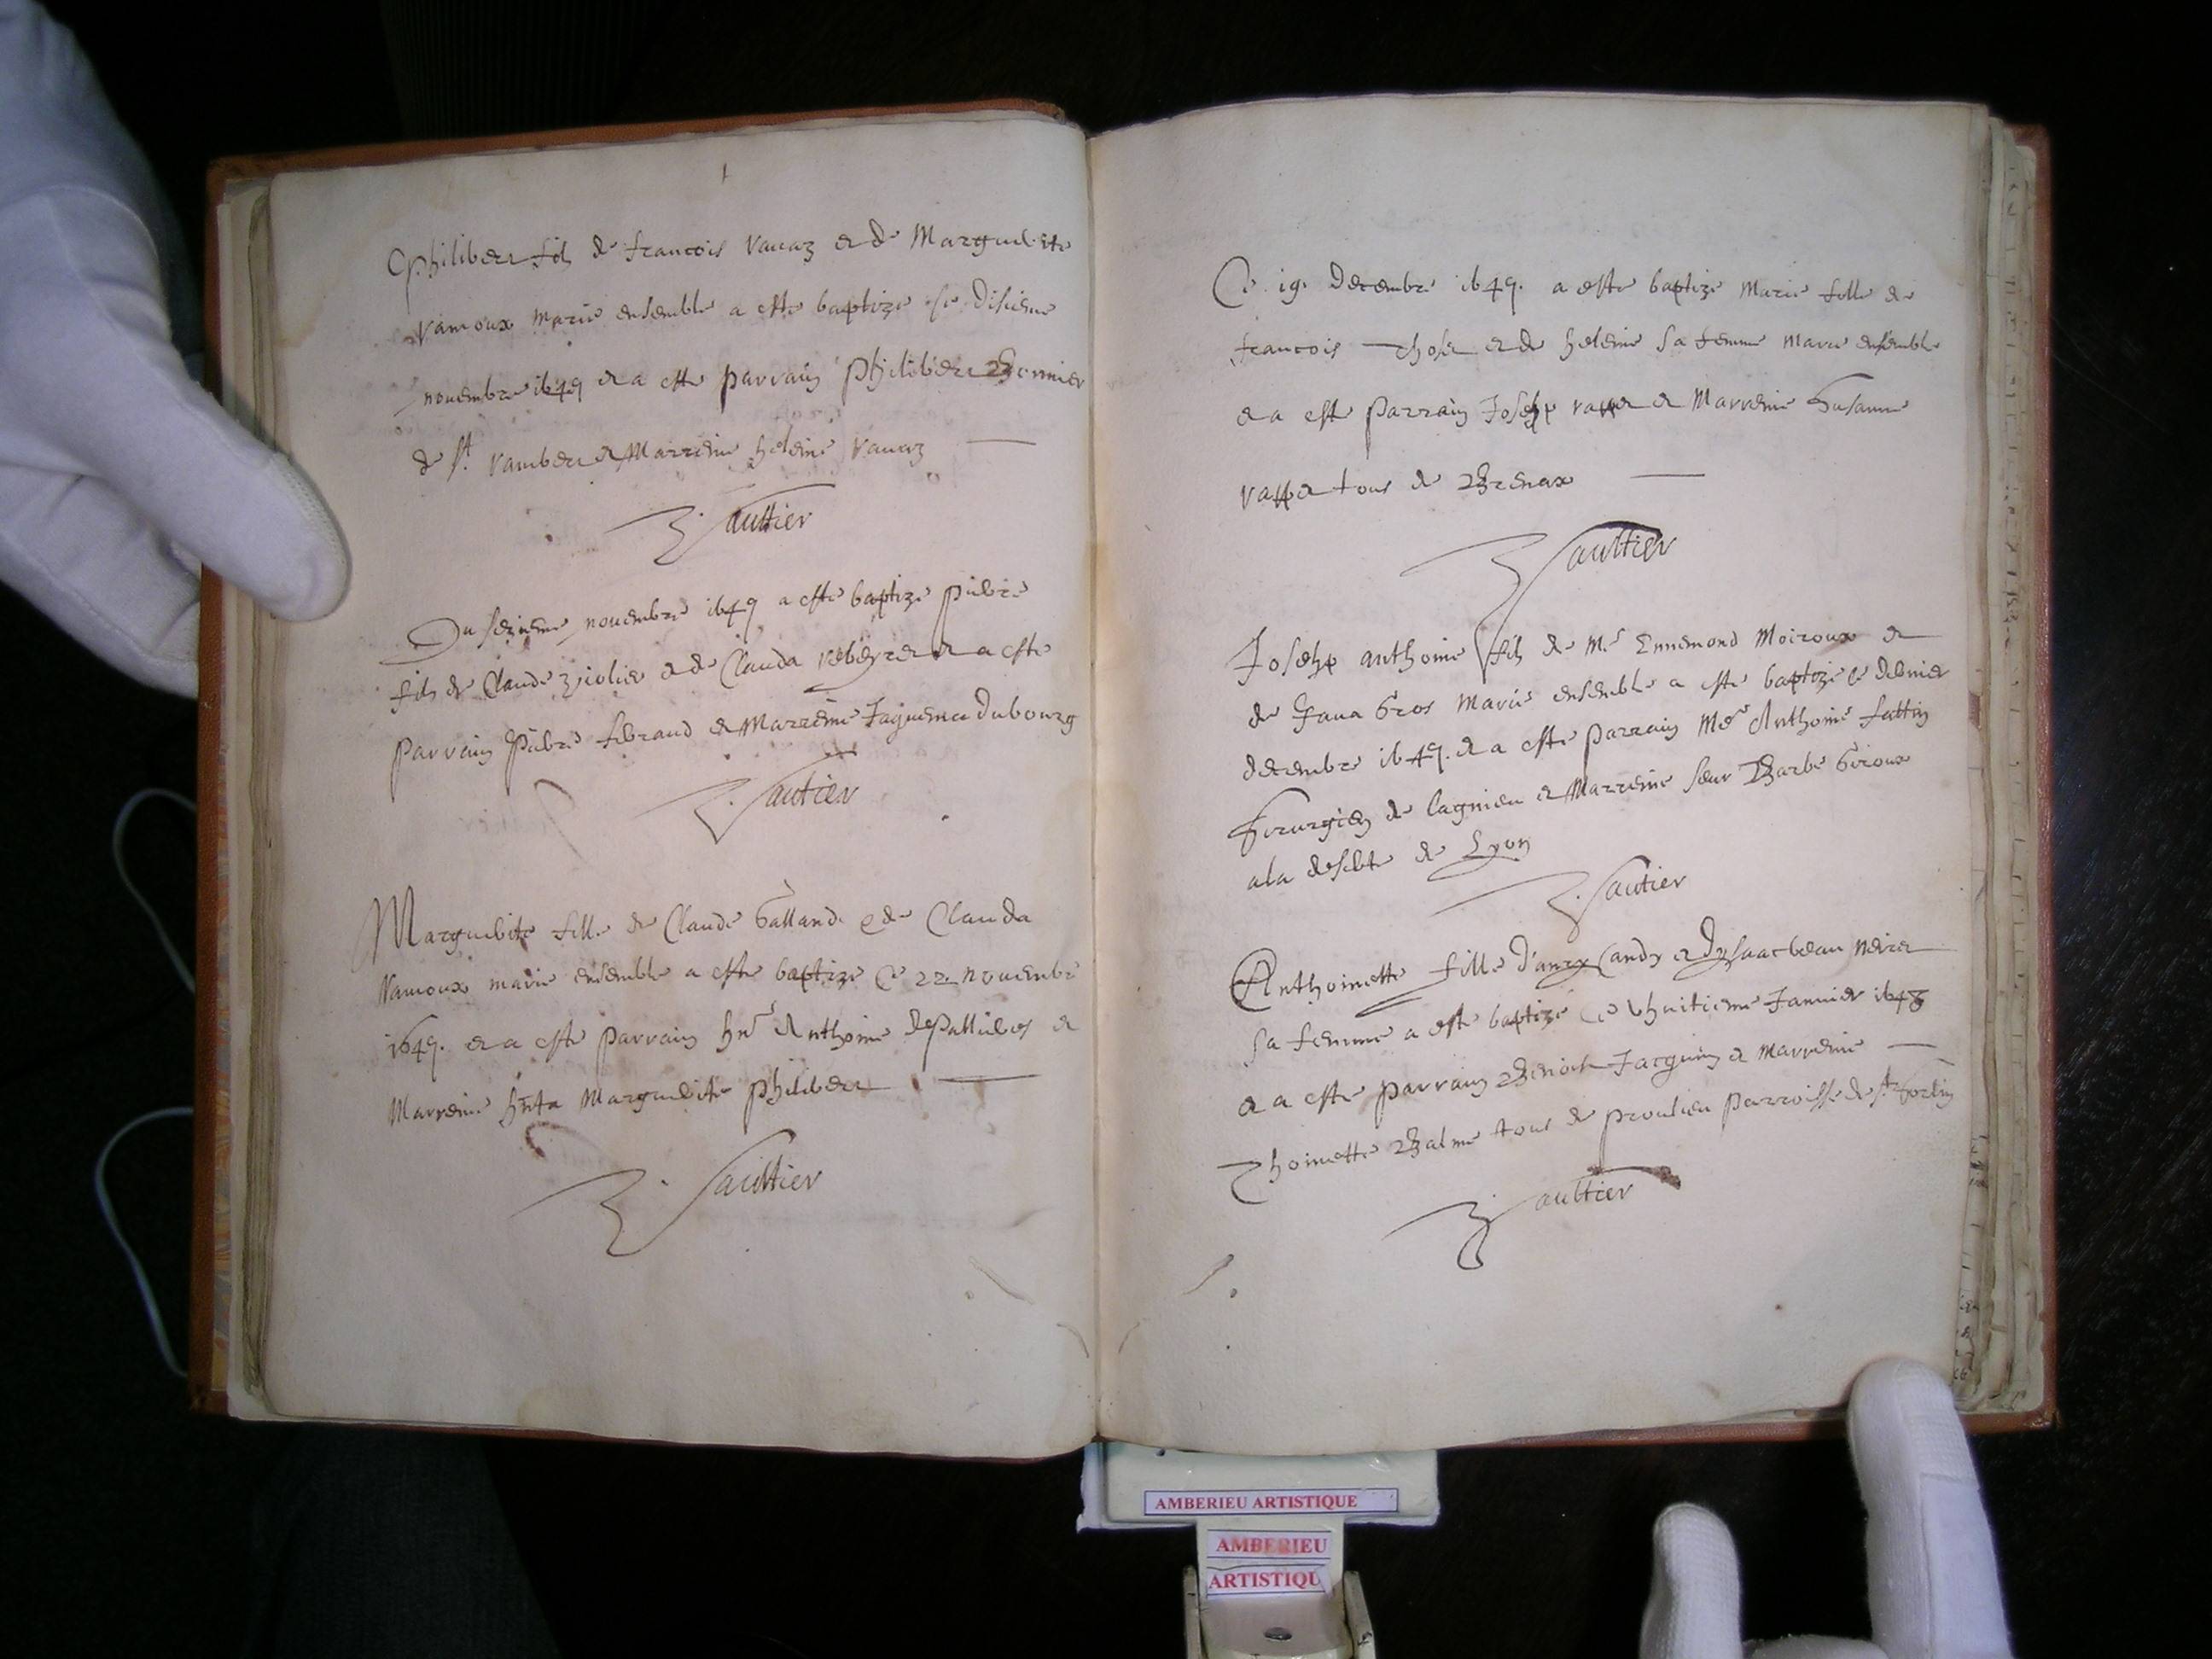 Philibert fils de francois Vauaz et de Marguerite
Vamoux marie ensemble a este baptize ce disieme
novembre 1649 et a este parrain Philibert Bonnier
de St. Rambert et Marreine heleine Vauaz
Gaultier
Du sezieme novembre 1649 a este baptize pierre
fils de Claude et de Clauda et a este
parrain pierre et Marreine Jaquema dubourg
Gautier
Marguerite fille de Claude Galland et de Clauda
Vamoux marie ensemble a este baptize Ce 22 novembre
1649. et a este parrain hnr Anthoine et
Marreine hnta Marguerite philibert
Gaultier
Ce 19. decembre 1649. a este baptize Marie fille de
francois et de heleine sa femme Marie ensemble
et a este parrain Joseph et Marreine Susanne
tous de Brenax
Gaultier
Joseph anthoine fils de Mr Ennemond Moiroux et
de Gros Marie ensemble a este baptize ce dernier
decembre 1649. et a este parrain Mre Anthoine
de Lagnieu et Marreine seur Barbe Giroux
a la deserte de Lyon
Gautier
Anthoinette fille d'amy et neiret
sa femme a este baptize Ce huitieme Janvier 1648
et a este parrain Benoit Jacquin et marreine
Thoinette Balme tous de proulieu parroisse de St Sorlin
Gaultier
AMBERIEU ARTISTIQUE
AMBERIEU
ARTISTIQU